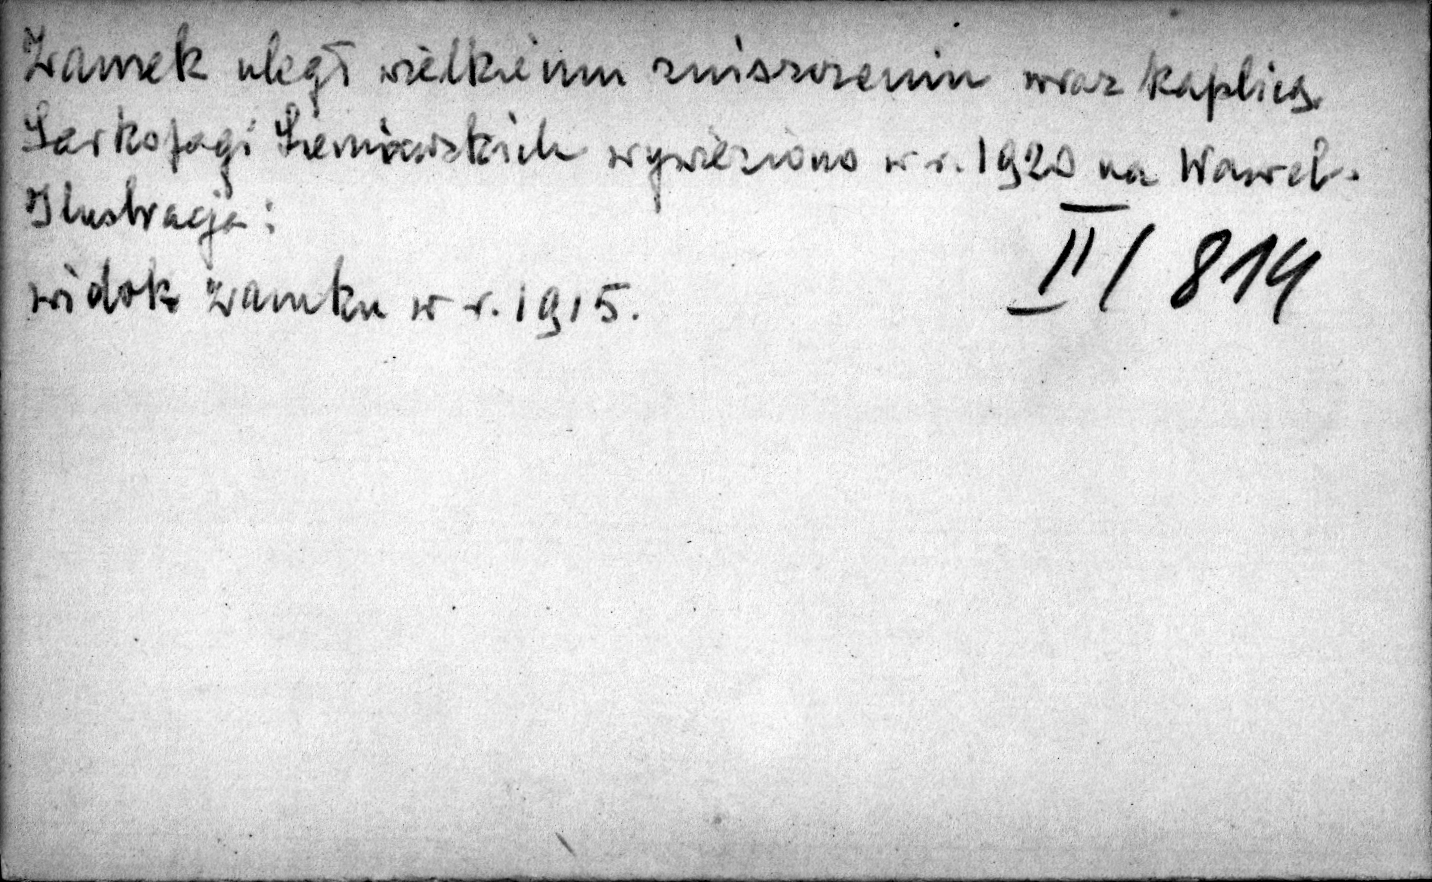 Zamek uległ wielkiemu zniszczeniu wraz kaplicą.
Sarkofagi Sieniawskich wywieziono w r. 1920 na Wawel.
Ilustracja:
widok zamku w r. 1915.
II / 814